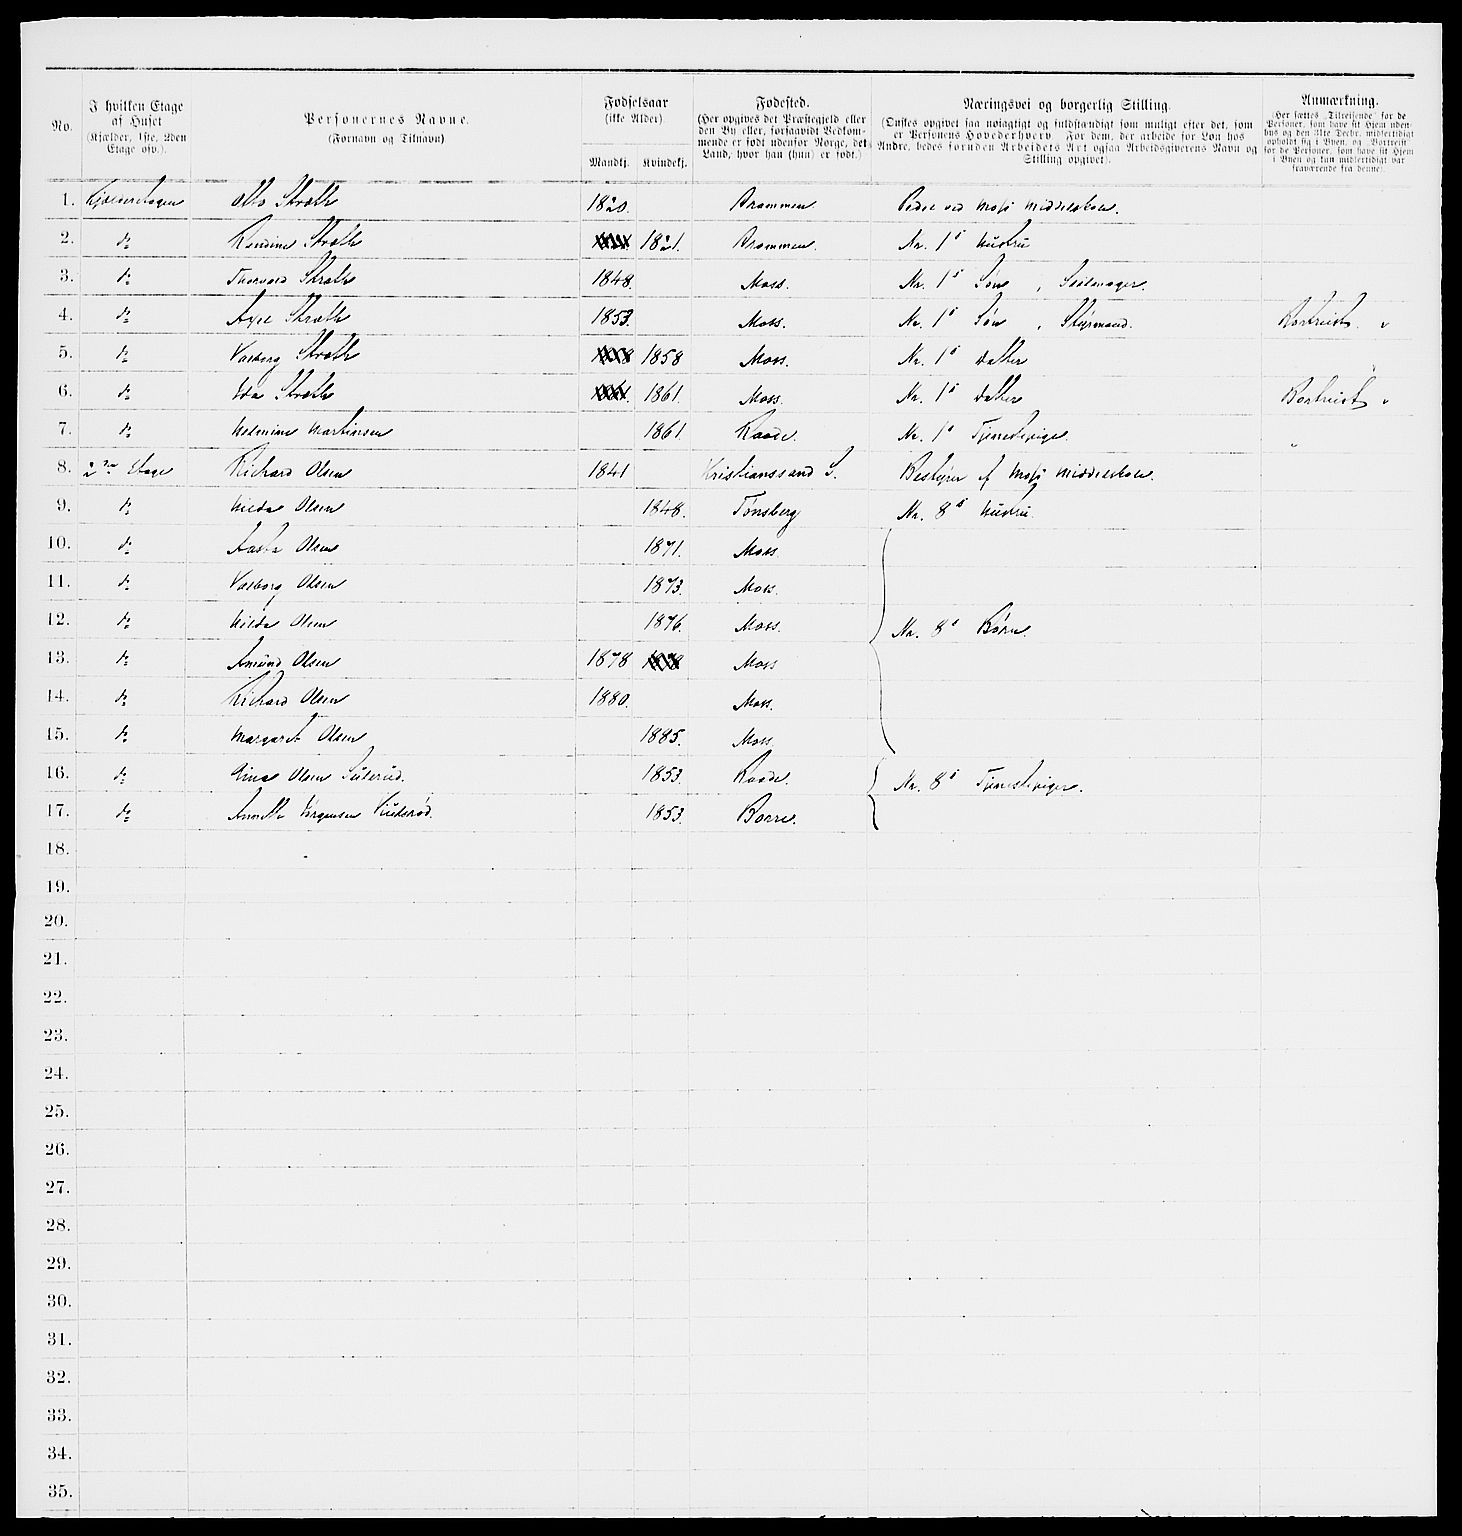 No.
I hvilken Etage af Huset (Kjælder, 1ste, 2den Etage osv.).
Personernes Navne. (Fornavn og Tilnavn)
Fødselsaar (ikke Alder).
Mandkj. Kvindekj.
Fødested. (Her opgives det Præstegjeld eller den By eller, forsaavidt Vedkommende er født udenfor Norge, det Land, hvor han (hun) er født.)
Næringsvei og borgerlig Stilling. (Ønskes opgivet saa nøiagtigt og fuldstændigt som muligt efter det, som er Personens Hovederhverv. For dem, der arbeide for Løn hos Andre, bedes foruden Arbeidets Art ogsaa Arbeidsgiverens Navn og Stilling opgivet).
Anmærkning. (Her sættes „Tilreisende" for de Personer, som have sit Hjem udenbys og den 31te Decbr. midlertidigt opholdt sig i Byen, og „Bortreist" for de Personer, som have sit Hjem i Byen og kun midlertidigt var fraværende fra denne).
1. Kjælderetagen Otto Stræth 1820. Drammen Pedel ved Moss Middelskole.
2. do Randine Stræth 1821. Drammen. No. 1s Hustru
3. do Thorvald Stræth 1848. Moss. No. 1s Søn, Seilmager.
4. do Axel Stræth 1853. Moss. No. 1s Søn, Styrmand. Bortreist "
5. do Valborg Stræth 1858 Moss. No. 1s Datter
6. do Ida Stræth 1861. Moss. No. 1s Datter Bortreist "
7. do Helmine Martinsen 1861. Raade. No. 1s Tjenestepige. "
8. 2den Etage Richard Olsen 1841 Kristianssand S. Bestyrer af Moss Middelskole.
9. do Hilda Olsen 1848. Tønsberg No. 8s Hustru.
10. do Aasta Olsen 1871. Moss.
11. do Valborg Olsen 1873. Moss.
12. do Hilda Olsen 1876. Moss. No. 8s Børn.
13. do Amund Olsen 1878 Moss
14. do Richard Olsen 1880. Moss.
15. do Margaret Olsen 1885. Moss
16. do Olsen 1853. Raade. No. 8s Tjenestepiger.
17. do Annette Jørgensen 1853. Borre.
18.
19.
20.
21.
22.
23.
24.
25.
26.
27.
28.
29.
30.
31.
32.
33.
34.
35.